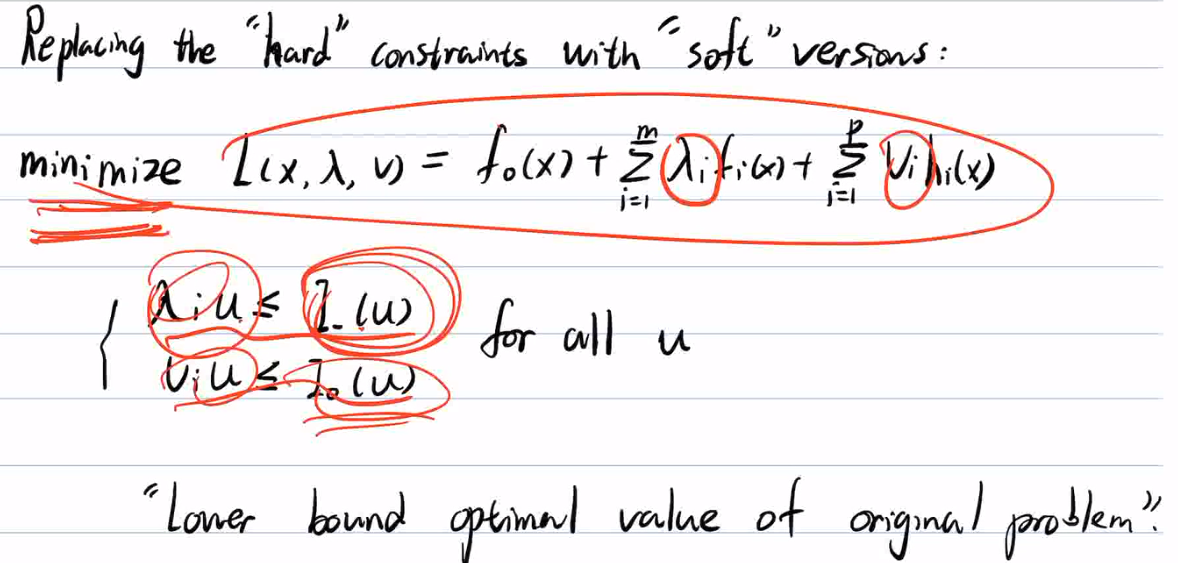 Replacing the "hard" constraints with "soft" versions:
minimize L(x, λ, ν) = f₀(x) + Σᵢ₌₁ᵐ λᵢfᵢ(x) + Σᵢ₌₁ᵖ νᵢhᵢ(x)
{ λᵢu ≤ I₋(u)
νᵢu ≤ I₀(u) for all u
"Lower bound optimal value of original problem".